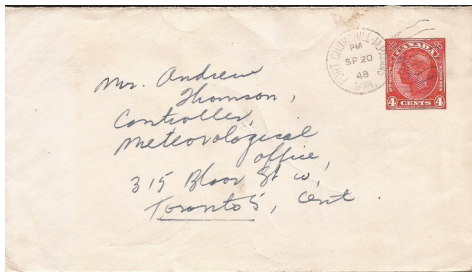 PM
SP 20
48
MAN.
CANADA
4 CENTS 4
Mr. Andrew
Thomson,
Controller,
Meteorological
office,
315 Bloor St W,
Toronto 5, Ont